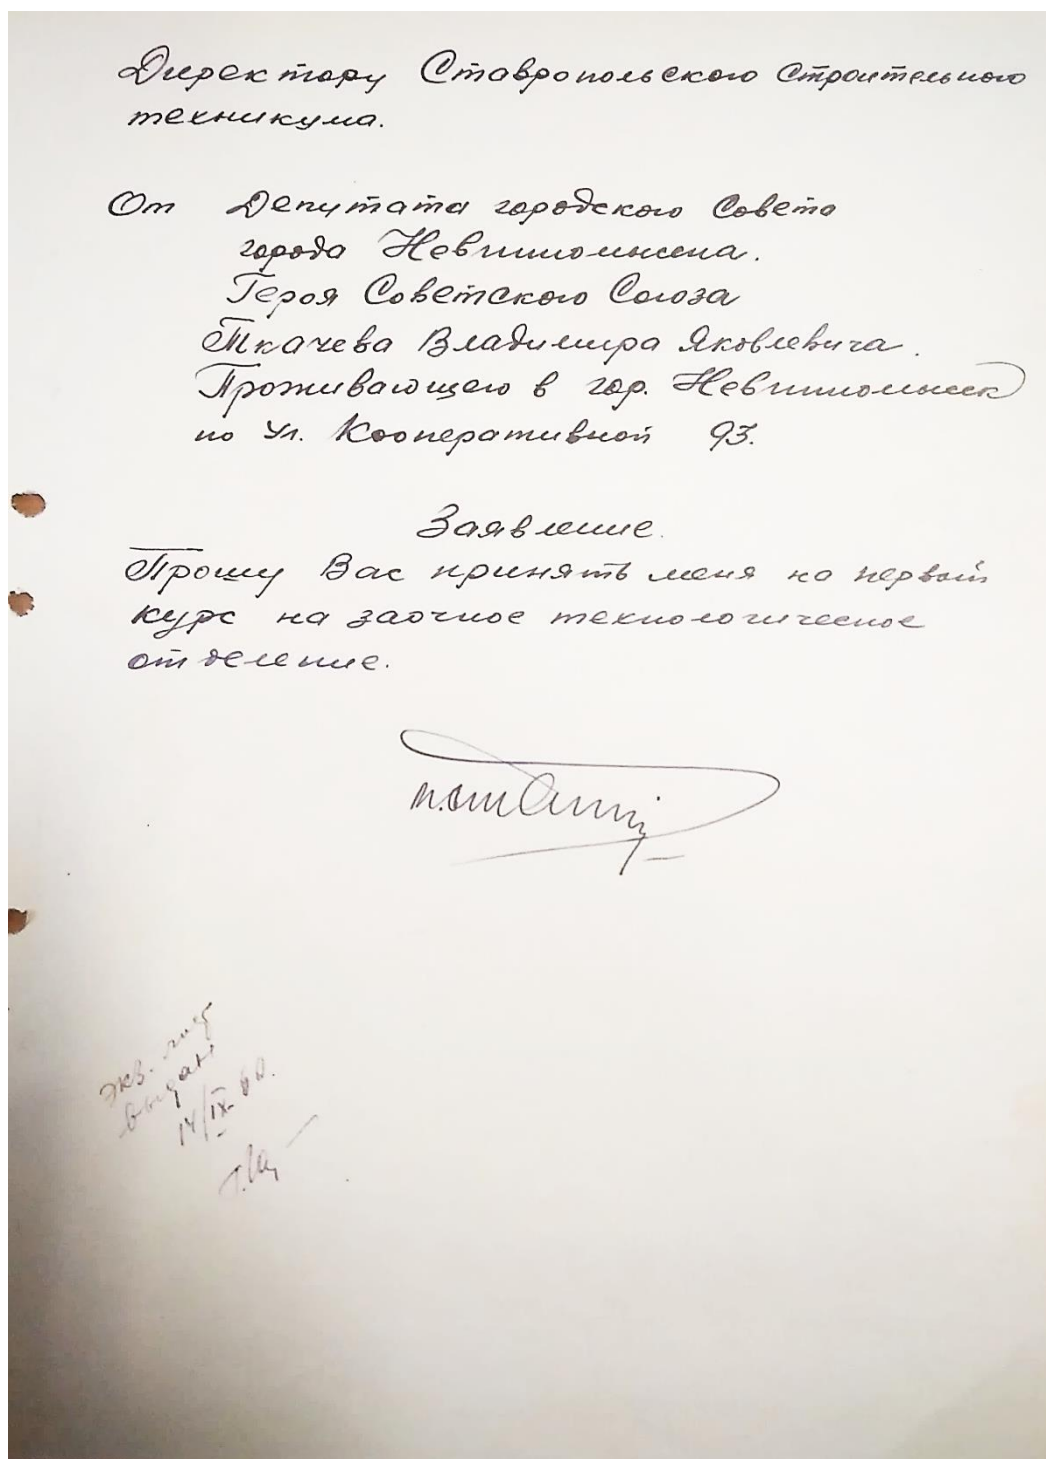 Директору Ставропольского Строительного
техникума.
От Депутата городского Совета
города Невинномысска.
Героя Советского Союза
Ткачева Владимира Яковлевича.
Проживающего в гор. Невинномысск
по Ул. Кооперативной 93.
Заявление.
Прошу Вас принять меня на первый
курс на заочное технологическое
отделение.
экз. лист
выдан
14/IX-60.